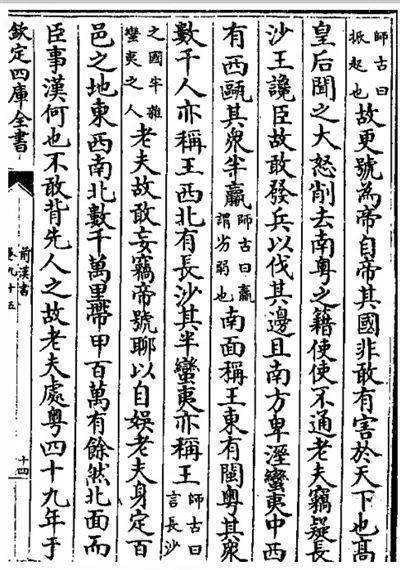 師古曰
振起也
故更號為帝自帝其國非敢有害於天下也髙
皇后聞之大怒削去南粵之籍使使不通老夫竊疑長
沙王讒臣故敢發兵以伐其邊且南方卑溼蠻夷中西
有西甌其衆半羸
師古曰羸
謂劣弱也
南面稱王東有閩粵其衆
數千人亦稱王西北有長沙其半蠻夷亦稱王
師古曰
言長沙
之國半雜
蠻夷之人
老夫故敢妄竊帝號聊以自娛老夫身定百
邑之地東西南北數千萬里帶甲百萬有餘然北面而
臣事漢何也不敢背先人之故老夫處粵四十九年于
欽定四庫全書
前漢書
卷九十五
十四